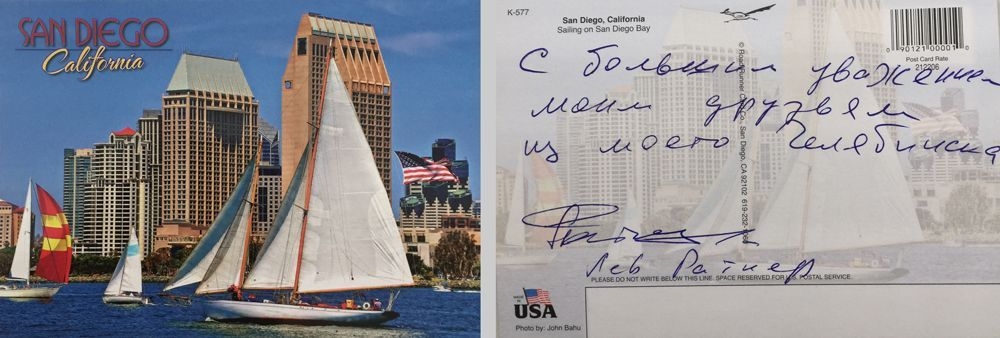 SAN DIEGO
California
K-577
San Diego, California
Sailing on San Diego Bay
0 90121 00001 0
Post Card Rate
212206
С большим уважением
моим друзьям
из моего Челябинска
Лев Ратнер
PLEASE DO NOT WRITE BELOW THIS LINE. SPACE RESERVED FOR U.S. POSTAL SERVICE.
MADE IN
USA
Photo by: John Bahu
© Road Runner Card Co., San Diego, CA 92102 619-232-